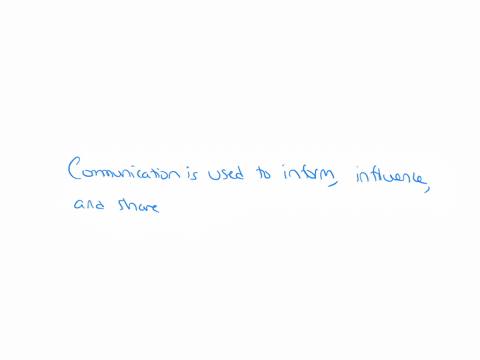 Communication is used to inform, influence,
and share